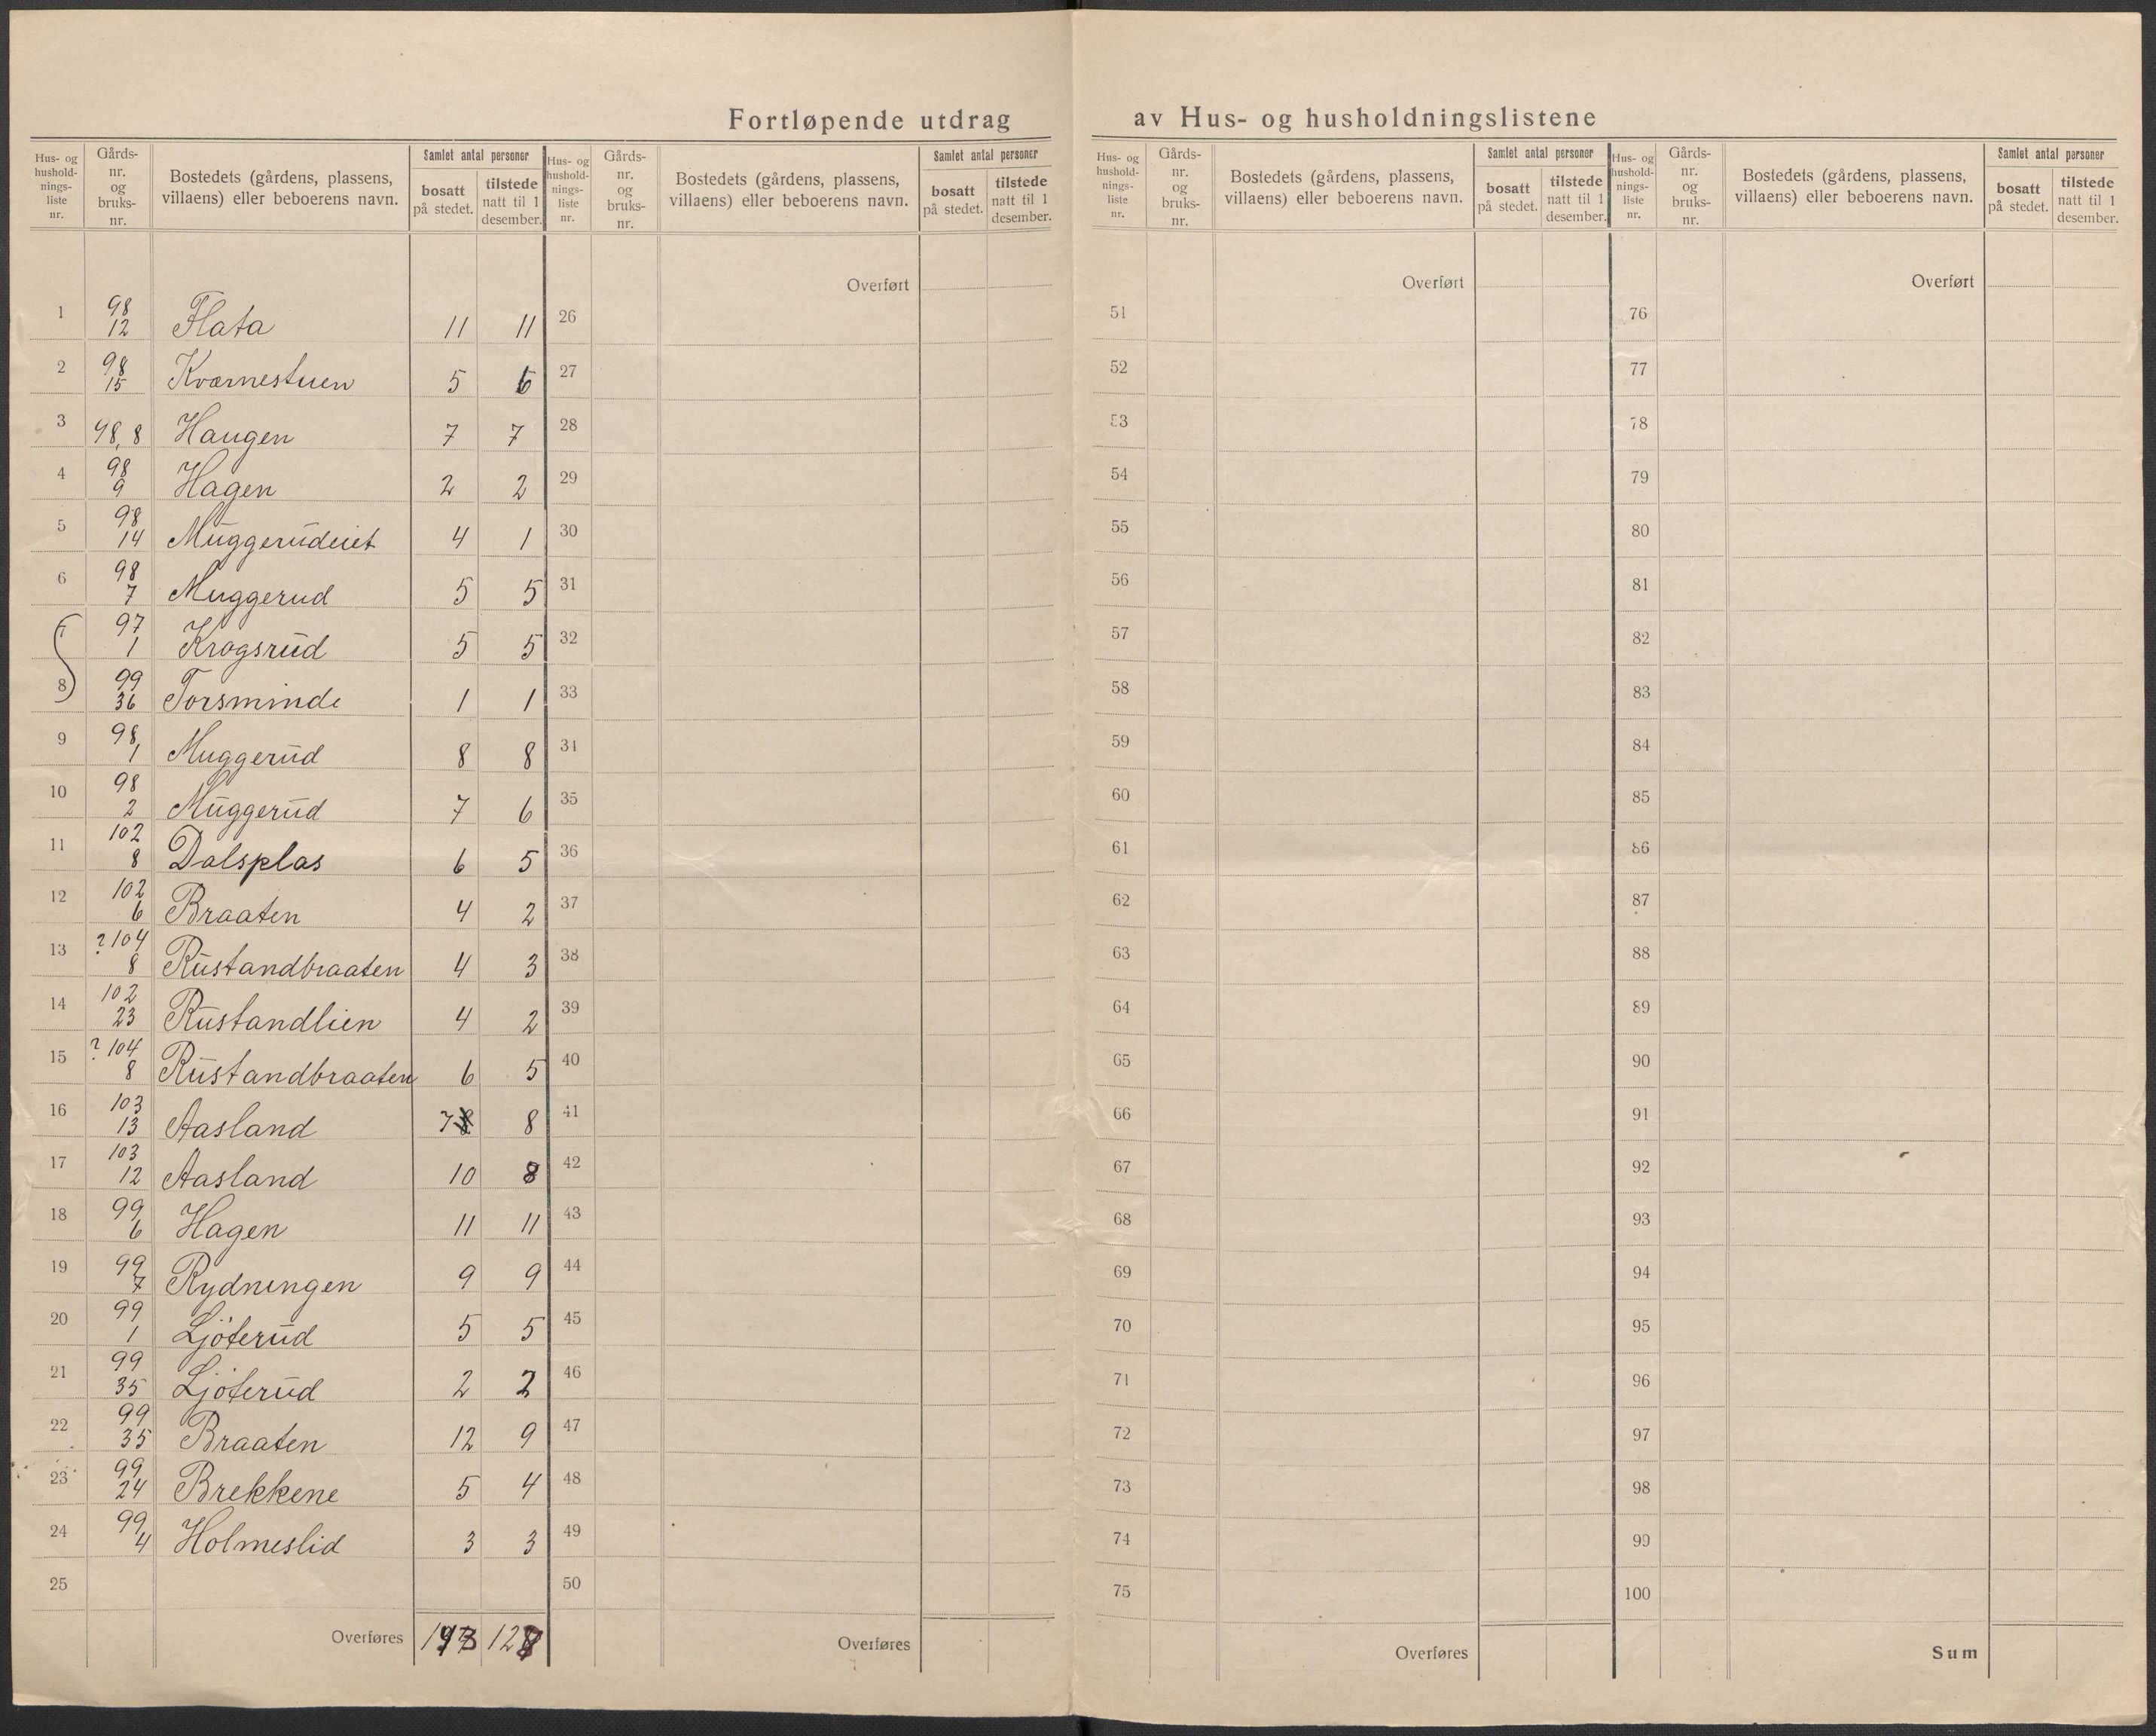 Fortløpende utdrag av Hus- og husholdningslistene
Hus- og hushold-nings-liste nr. Gårds-nr. og bruks-nr. Bostedets (gårdens, plassens, villaens) eller beboerens navn. Samlet antal personer bosatt på stedet. tilstede natt til 1 desember.
Hus- og hushold-nings-liste nr. Gårds-nr. og bruks-nr. Bostedets (gårdens, plassens, villaens) eller beboerens navn. Samlet antal personer bosatt på stedet. tilstede natt til 1 desember.
Hus- og hushold-nings-liste nr. Gårds-nr. og bruks-nr. Bostedets (gårdens, plassens, villaens) eller beboerens navn. Samlet antal personer bosatt på stedet. tilstede natt til 1 desember.
Hus- og hushold-nings-liste nr. Gårds-nr. og bruks-nr. Bostedets (gårdens, plassens, villaens) eller beboerens navn. Samlet antal personer bosatt på stedet. tilstede natt til 1 desember.
Overført Overført Overført
1 98 12 Flata 11 11 26 51 76
2 98 15 Kværnestuen 5 6 27 52 77
3 98,8 Haugen 7 7 28 53 78
4 98 9 Hagen 2 2 29 54 79
5 98 14 Muggerudeiet 4 1 30 55 80
6 98 7 Muggerud 5 5 31 56 81
7 97 1 Krogsrud 5 5 32 57 82
8 99 36 Torsminde 1 1 33 58 83
9 98 1 Muggerud 8 8 34 59 84
10 98 2 Muggerud 7 6 35 60 85
11 102 8 Dalsplas 6 5 36 61 86
12 102 6 Braaten 4 2 37 62 87
13 ?104 8 Rustandbraaten 4 3 38 63 88
14 102 23 Rustandlien 4 2 39 64 89
15 ?104 8 Rustandbraaten 6 5 40 65 90
16 103 13 Aasland 7 8 8 41 66 91
17 103 12 Aasland 10 8 42 67 92
18 99 6 Hagen 11 11 43 68 93
19 99 7 Rydningen 9 9 44 69 94
20 99 1 Ljöterud 5 5 45 70 95
21 99 35 Ljöterud 2 2 46 71 96
22 99 35 Braaten 12 9 47 72 97
23 99 24 Brekkene 5 4 48 73 98
24 99 4 Holmeslid 3 3 49 74 99
25 50 75 100
Overføres Overføres Overføres Sum